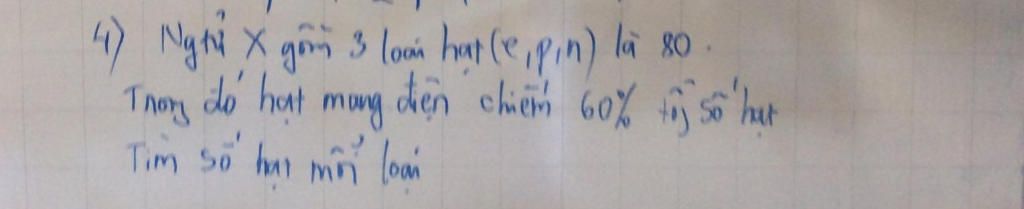 4) Ngtử X gồm 3 loại hạt (e,p,n) là 80.
Trong đó hạt mang điện chiếm 60% tổg số hạt
Tìm số hạt mỗi loại